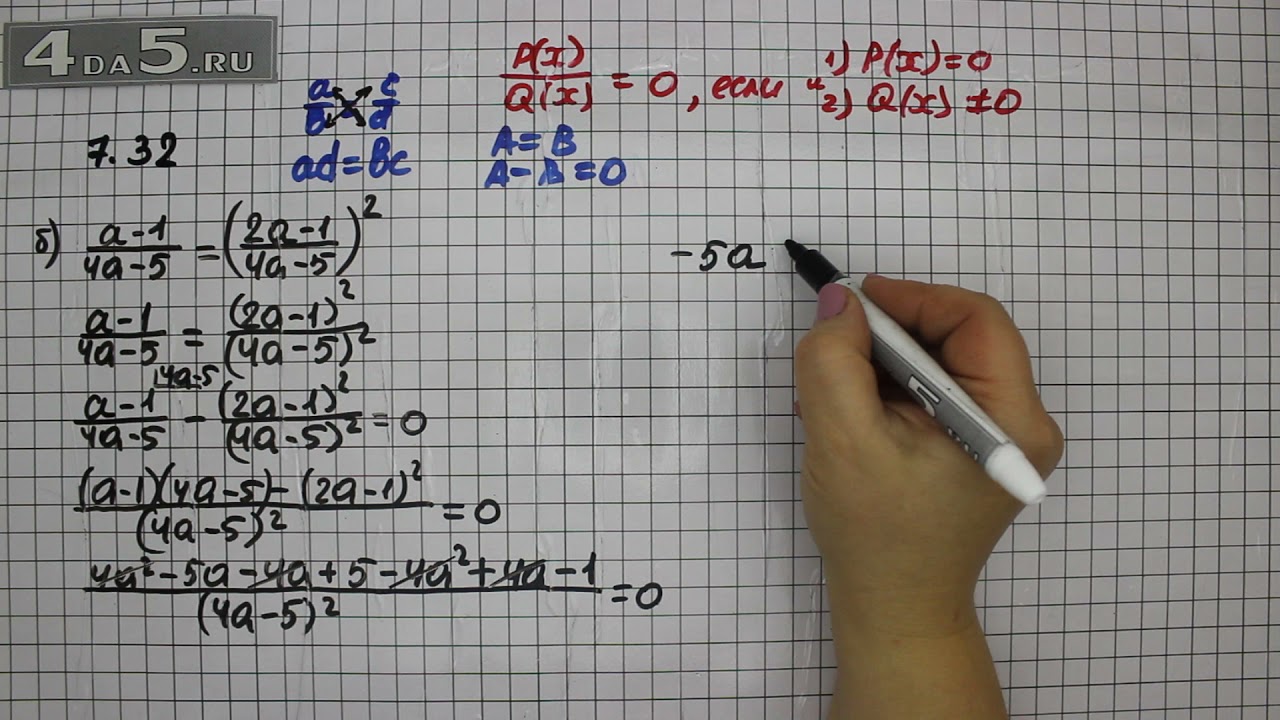 4DA5.RU
P(x)/Q(x) = 0, если 1) P(x)=0 и 2) Q(x) ≠ 0
a/b c/d
ad = bc
A = B
A - B = 0
7.32
б) (a-1)/(4a-5) = ((2a-1)/(4a-5))²
(a-1)/(4a-5) = (2a-1)²/(4a-5)²
(a-1)/(4a-5) |4a-5 - (2a-1)²/(4a-5)² = 0
((a-1)(4a-5) - (2a-1)²)/(4a-5)² = 0
(4a² - 5a - 4a + 5 - 4a² + 4a - 1)/(4a-5)² = 0
-5a